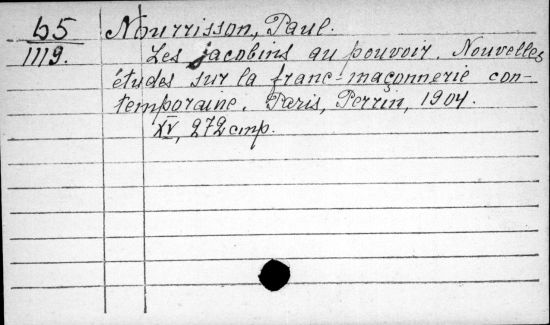 b5 Nourrisson, Paul.
1119. Les jacobins au pouvoir. Nouvelles
études sur la franc-maçonnerie con-
temporaine. Paris, Perrin, 1904.
XV, 272 стр.